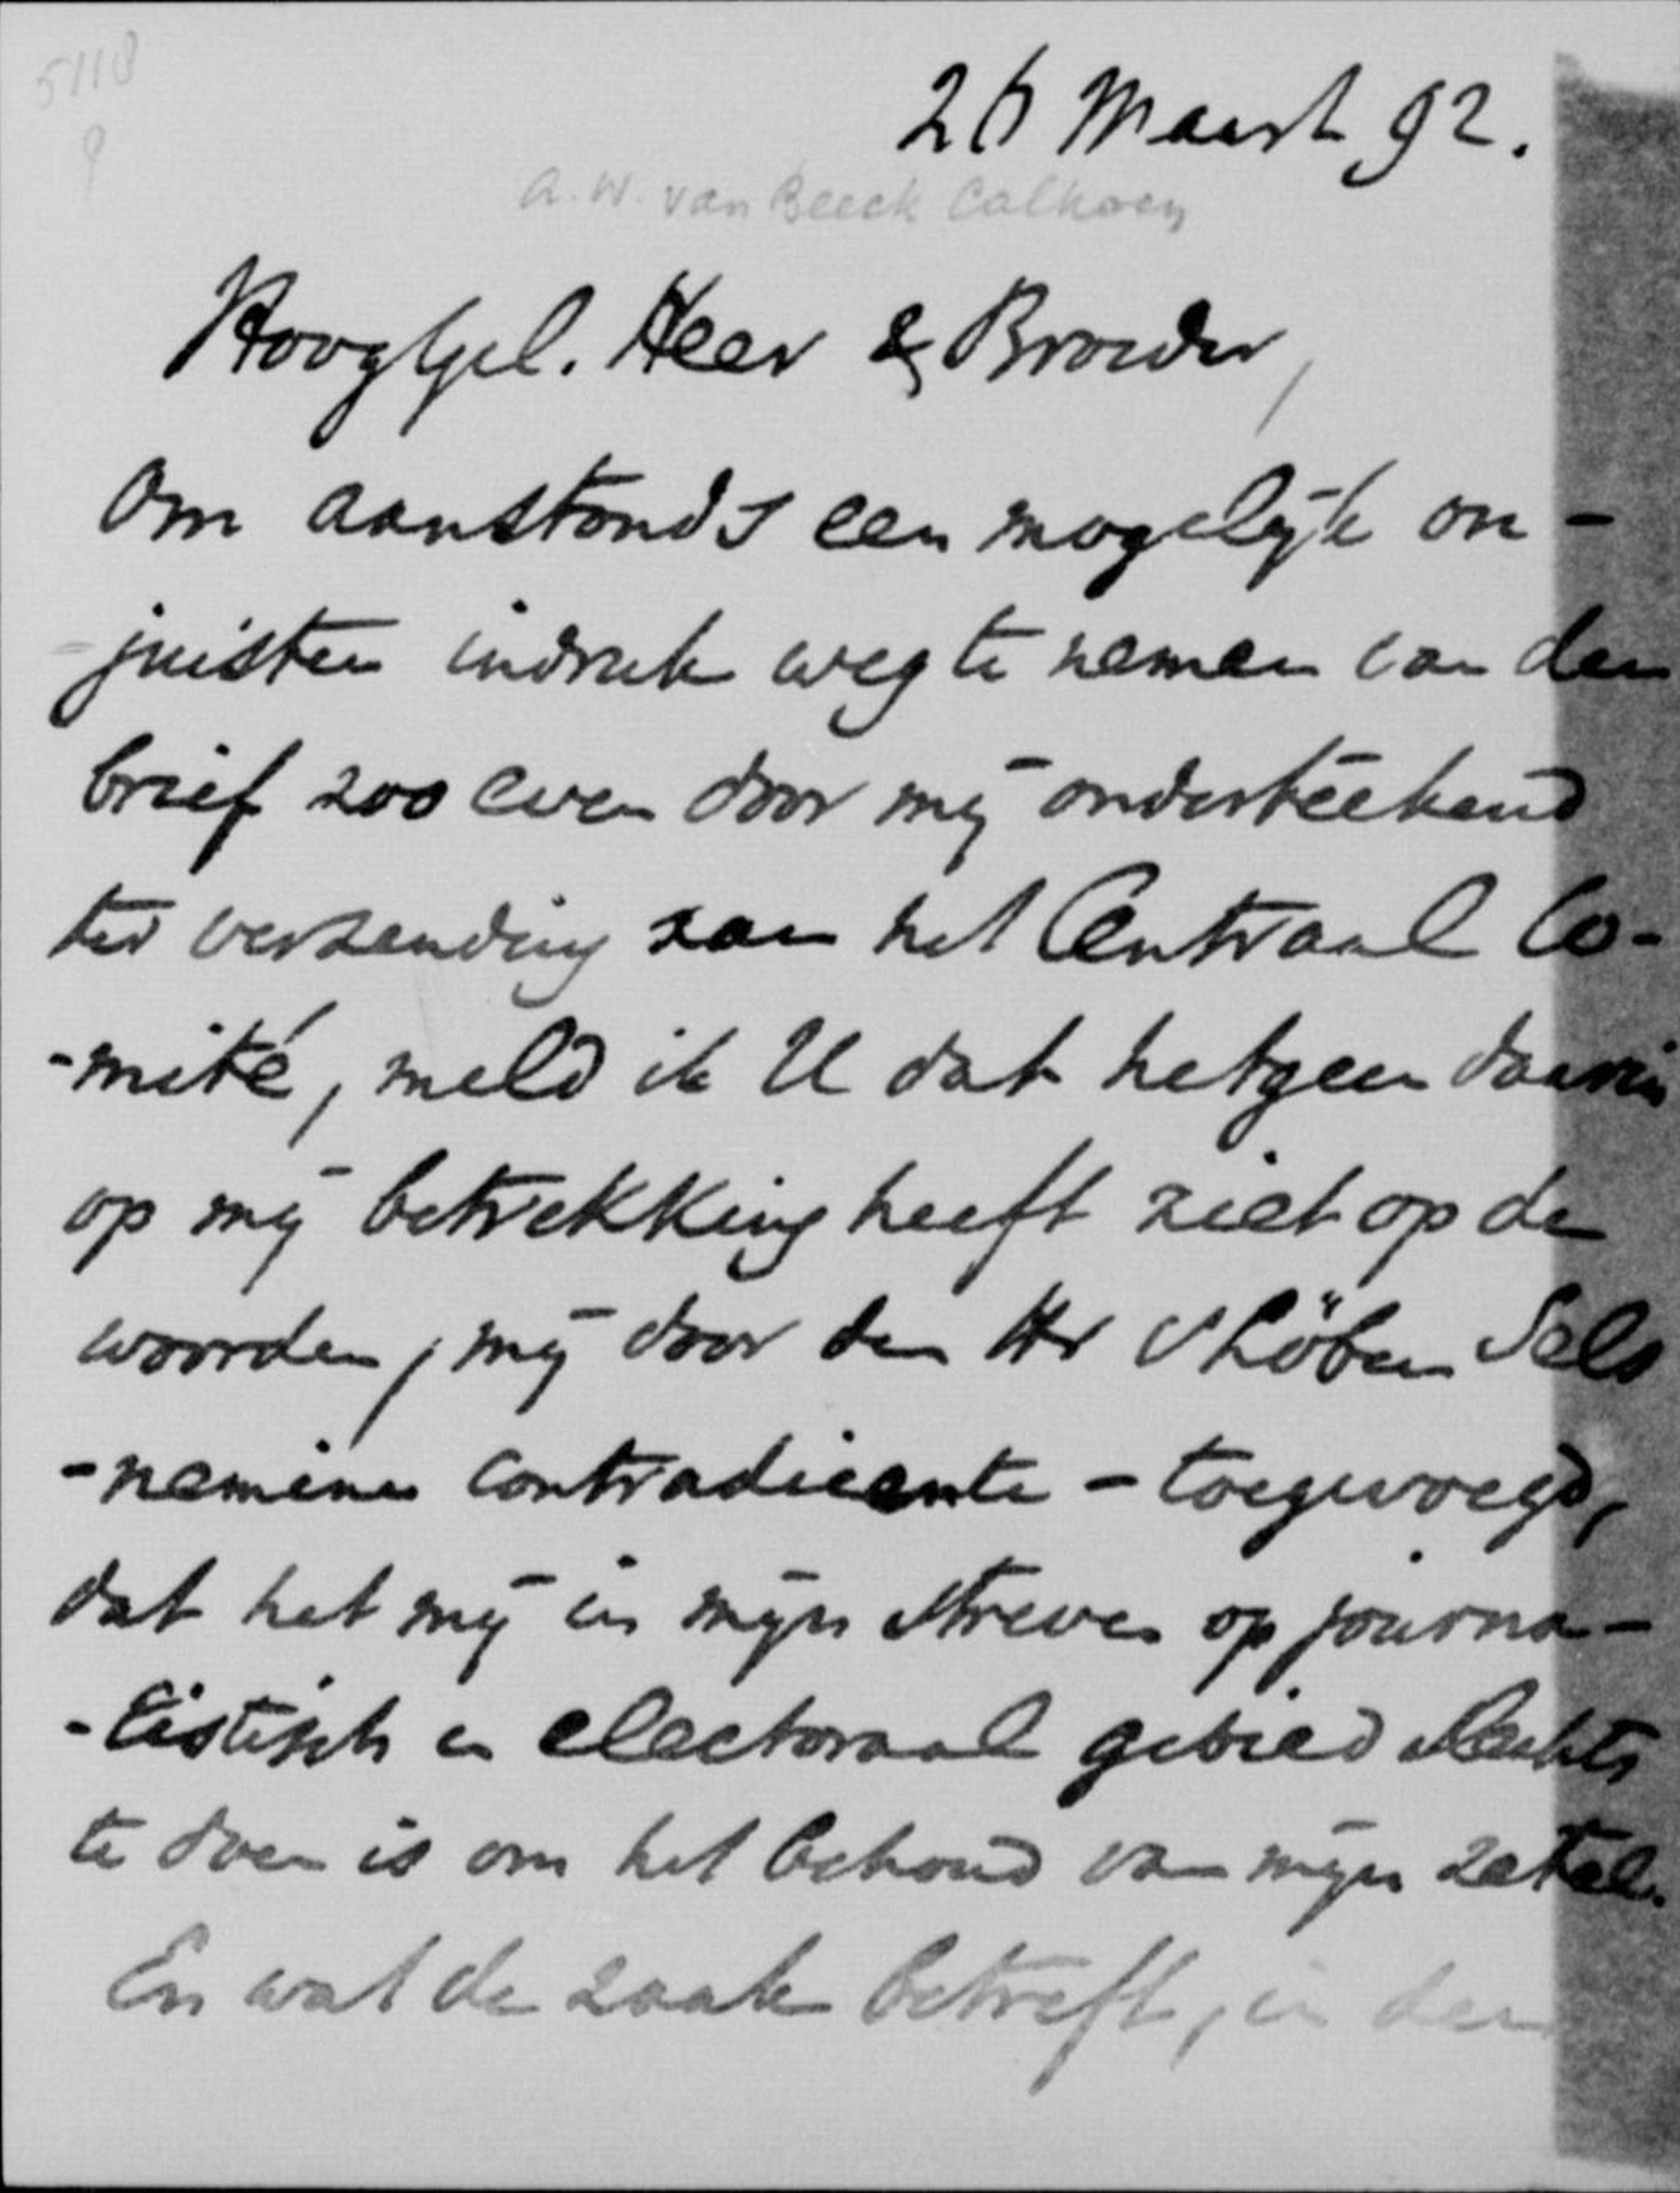 5118
9
26 Maart 92.
A. W. van Beeck Calkoen
HoogGel. Heer & Broeder,
Om aanstonds een mogelijk on-
juisten indruk weg te nemen van den
brief zoo even door mij onderteekend
ter verzending aan het Centraal Co-
-mité, meld ik U dat hetgeen daarin
op mij betrekking heeft ziet op de
woorden, mij door den Hr v Löben Sels
-nemine contradicente - toegevoegd,
dat het mij in mijn streven op journa-
-listisch en electoraal gebied slechts
te doen is om het behoud van mijn zetel.
En wat de zaak betreft, in den